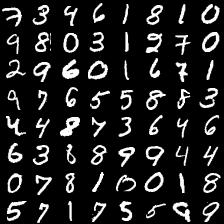 7 3 4 6 1 8 1 0
9 8 0 3 1 2 7 0
2 9 6 0 1 6 7 1
9 7 6 5 5 8 8 3
4 4 8 7 3 6 4 6
6 3 8 8 9 9 4 4
0 7 8 1 0 0 1 8
5 7 1 7 5 5 9 9